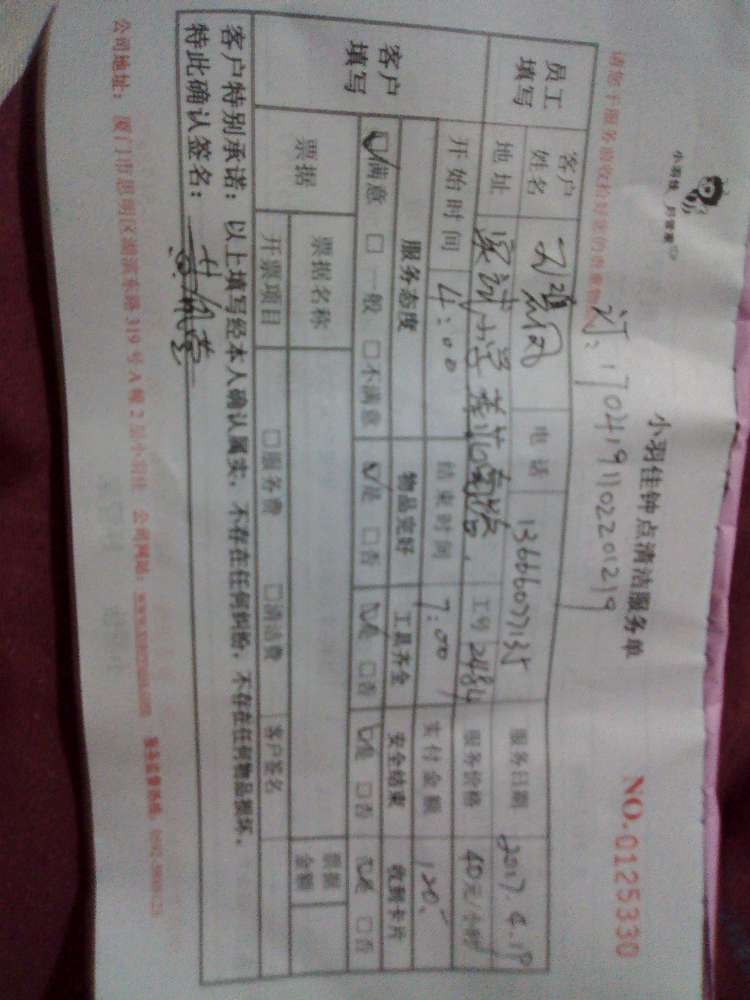 小羽佳 好管家
小羽佳钟点清洁服务单
NO.0125330
请您于服务前收拾好您的贵重物品
订:1704191102201219
员工填写 客户姓名 电话 13666077135 服务日期 2017.4.19
地址 工号 2484 服务价格 40元/小时
客户填写 开始时间 4:00 结束时间 7:00 实付金额 120.
服务态度 物品完好 工具齐全 安全结束 收到卡片
☑满意 □一般 □不满意 ☑是 □否 ☑是 □否 ☑是 □否 ☑是 □否
票据 票据名称 票据金额
开票项目 □服务费 □清洁费 客户签名
客户特别承诺:以上填写经本人确认属实,不存在任何纠纷,不存在任何物品损坏,
特此确认签名:
公司地址:厦门市思明区湖滨东路319号A幢2层小羽佳 公司网站: 服务监督热线: